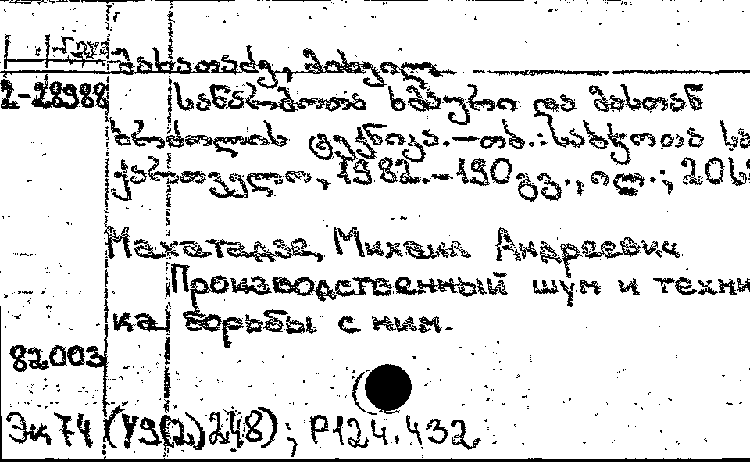 Груз
მახათაძე, მიხეილ
2-28988
საწარმოთა ხმაური და მასთან
ბრძოლის ტექნიკა.—თბ.:საბჭოთა სა
ქართველო, 1982.—190გვ., ილ.; 20
Махатадзе, Михаил Андреевич
Производственный шум и техни
ка борьбы с ним.
82003
Эк74 (У9(2)248); Р124.432